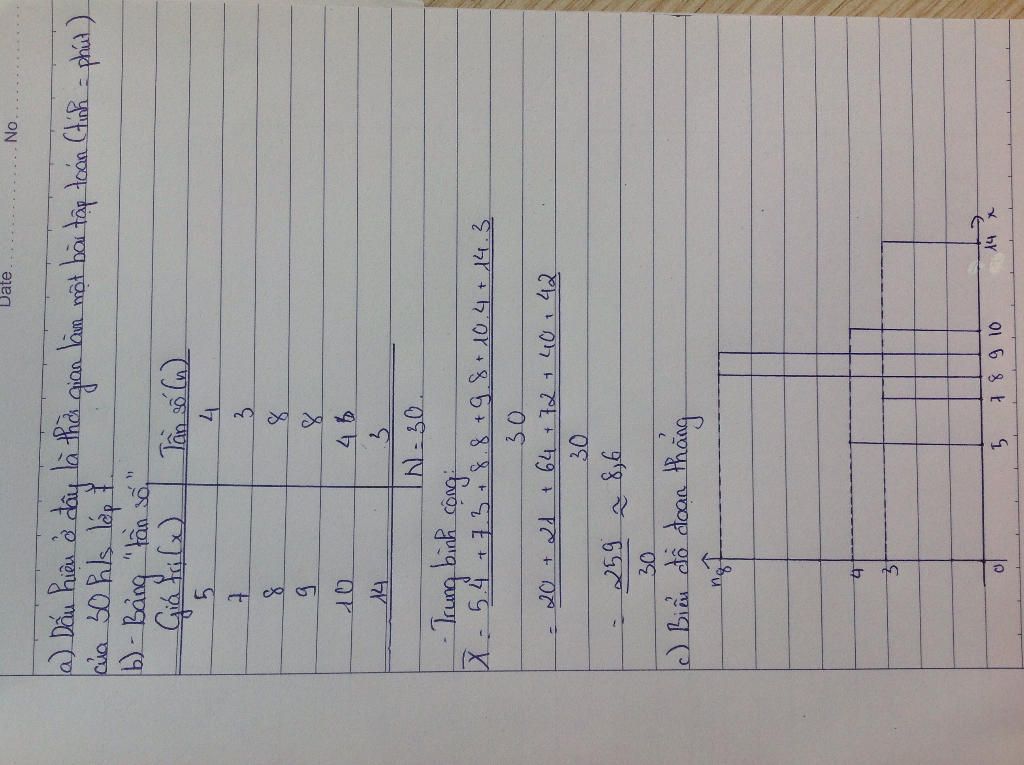 Date .......... No ..........
a) Dấu hiệu ở đây là thời gian làm một bài tập toán (tính = phút)
của 30 h/s lớp 7.
b) - Bảng "tần số"
Giá trị (x) Tần số (n)
5 4
7 3
8 8
9 8
10 4
14 3
N = 30
- Trung bình cộng:
X̄ = 5.4 + 7.3 + 8.8 + 9.8 + 10.4 + 14.3
30
= 20 + 21 + 64 + 72 + 40 + 42
30
= 259 ≈ 8,6
30
c) Biểu đồ đoạn thẳng
n
8
4
3
0 5 7 8 9 10 14 x